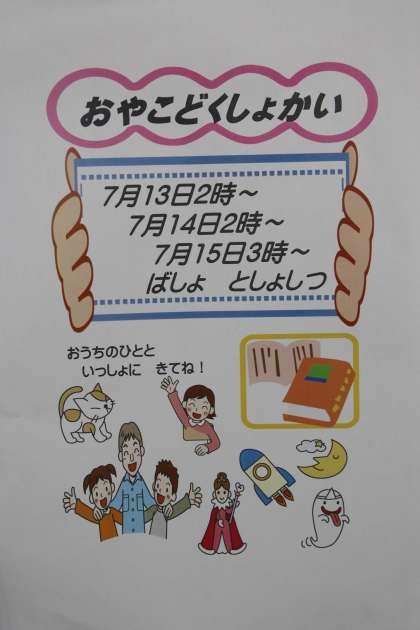 おやこどくしょかい
7月13日2時～
7月14日2時～
7月15日3時～
ばしょ　としょしつ
おうちのひとと
いっしょに　きてね！